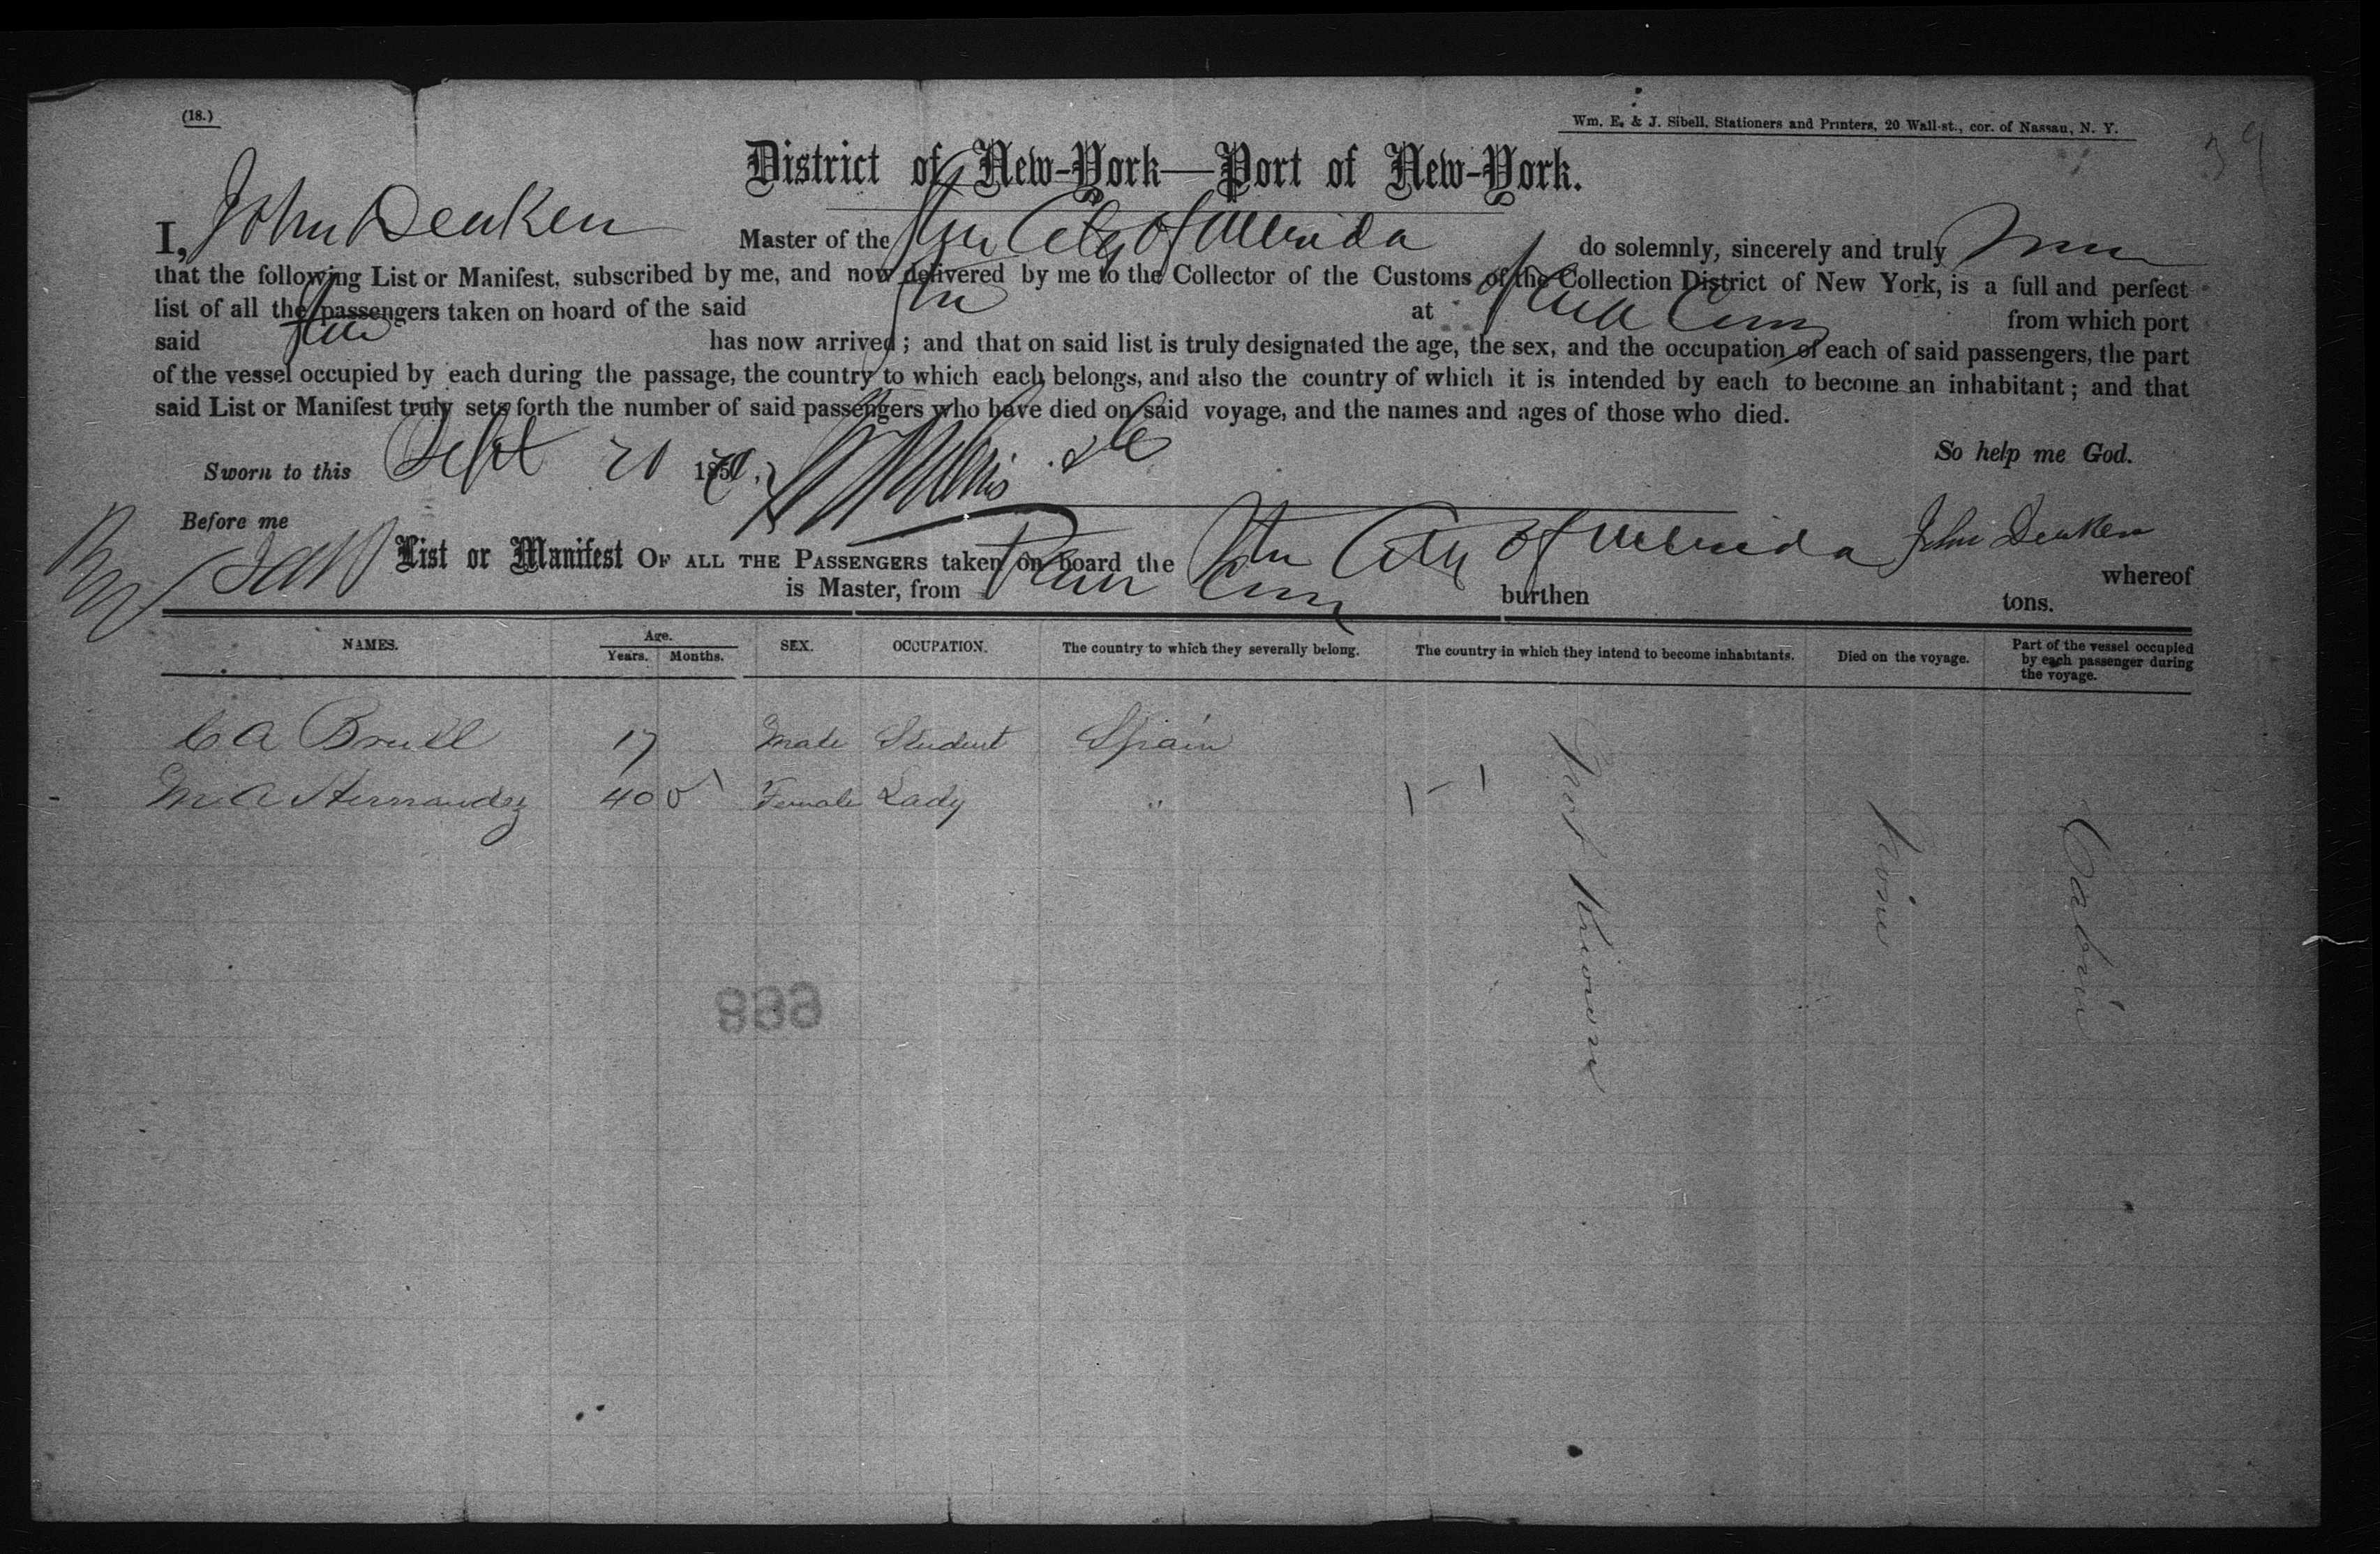 (18.)
Wm. E. & J. Sibell, Stationers and Printers, 20 Wall-st., cor. of Nassau, N. Y.
39
District of New-York—Port of New-York.
I, John Deaken Master of the Str City of Merida do solemnly, sincerely and truly
that the following List or Manifest, subscribed by me, and now delivered by me to the Collector of the Customs of the Collection District of New York, is a full and perfect
list of all the passengers taken on board of the said Str at Vera Cruz from which port
said Str has now arrived; and that on said list is truly designated the age, the sex, and the occupation of each of said passengers, the part
of the vessel occupied by each during the passage, the country to which each belongs, and also the country of which it is intended by each to become an inhabitant; and that
said List or Manifest truly sets forth the number of said passengers who have died on said voyage, and the names and ages of those who died.
So help me God.
Sworn to this Sept 21 18
Before me
John Deaken
List or Manifest OF ALL THE PASSENGERS taken on board the Str City of Merida whereof
is Master, from Vera Cruz burthen tons.
NAMES. Age. Years. Months. SEX. OCCUPATION. The country to which they severally belong. The country in which they intend to become inhabitants. Died on the voyage. Part of the vessel occupied by each passenger during the voyage.
C A Brull 17 Male Student Spain
M A Hernandez 40 Female Lady "
Not Known
None
Cabin
888